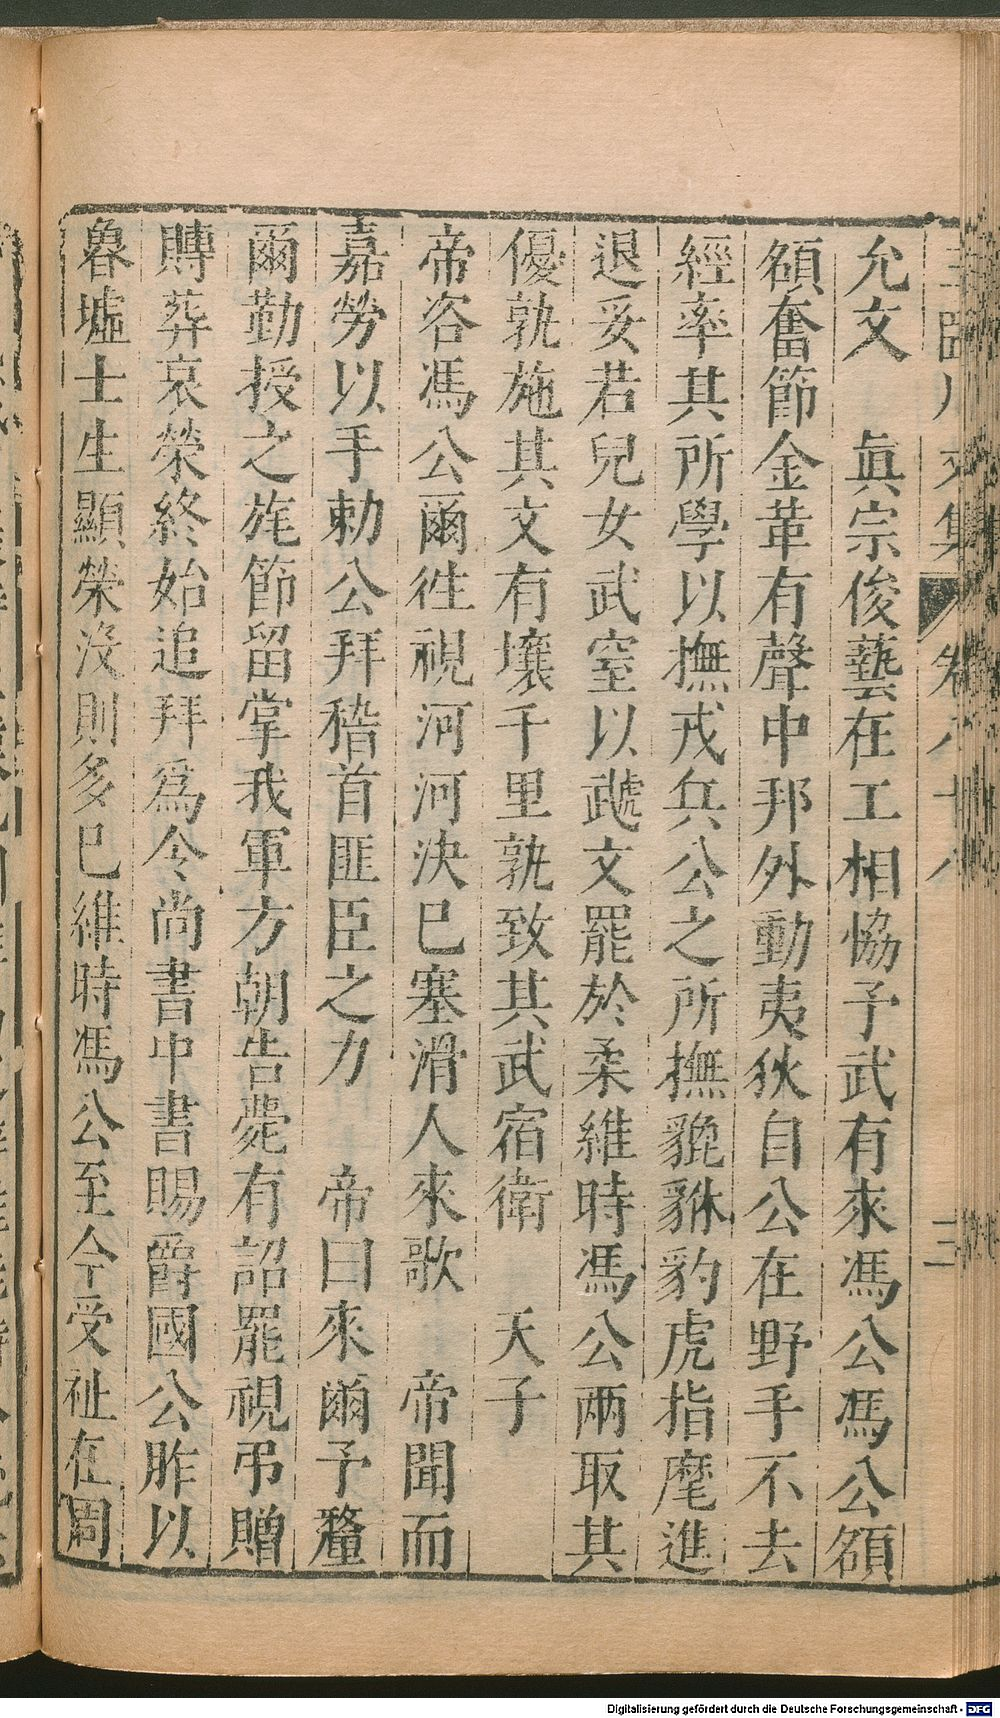 王臨川文集 卷八十八 三
允文 眞宗俊藝在工相協予武有來馮公馮公頟
頟奮節金革有聲中邦外動夷狄自公在野手不去
經率其所學以撫戎兵公之所撫貔貅豹虎指麾進
退妥若兒女武窒以虣文罷於柔維時馮公兩取其
優孰施其文有壤千里孰致其武宿衛 天子
帝咨馮公爾徃視河河決巳塞滑人來歌 帝聞而
嘉勞以手勅公拜稽首匪臣之力 帝曰來爾予釐
爾勤授之旄節留掌我軍方朝告薨有詔罷視弔贈
賻葬哀榮終始追拜爲令尚書中書賜爵國公胙以
魯墟士生顯榮沒則多巳維時馮公至今受祉在周
Digitalisierung gefördert durch die Deutsche Forschungsgemeinschaft - DFG